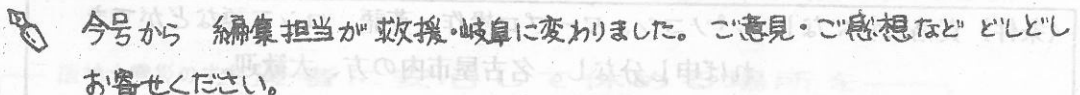 今号から 編集担当が救援・岐阜に変わりました。ご意見・ご感想など どしどし
お寄せください。